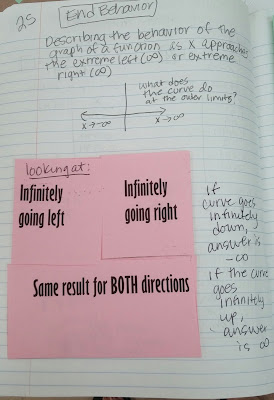 25
End Behavior
Describing the behavior of the
graph of a function as x approaches
the extreme left (∞) or extreme
right (∞)
what does
the curve do
at the outer limits?
x→-∞
x→∞
looking at:
Infinitely
going left
Infinitely
going right
Same result for BOTH directions
if
curve goes
infinitely
down,
answer is
-∞
if the curve
goes
infinitely
up,
answer
is ∞